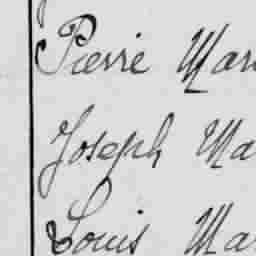 Pierre Mar
Joseph Ma
Louis Ma